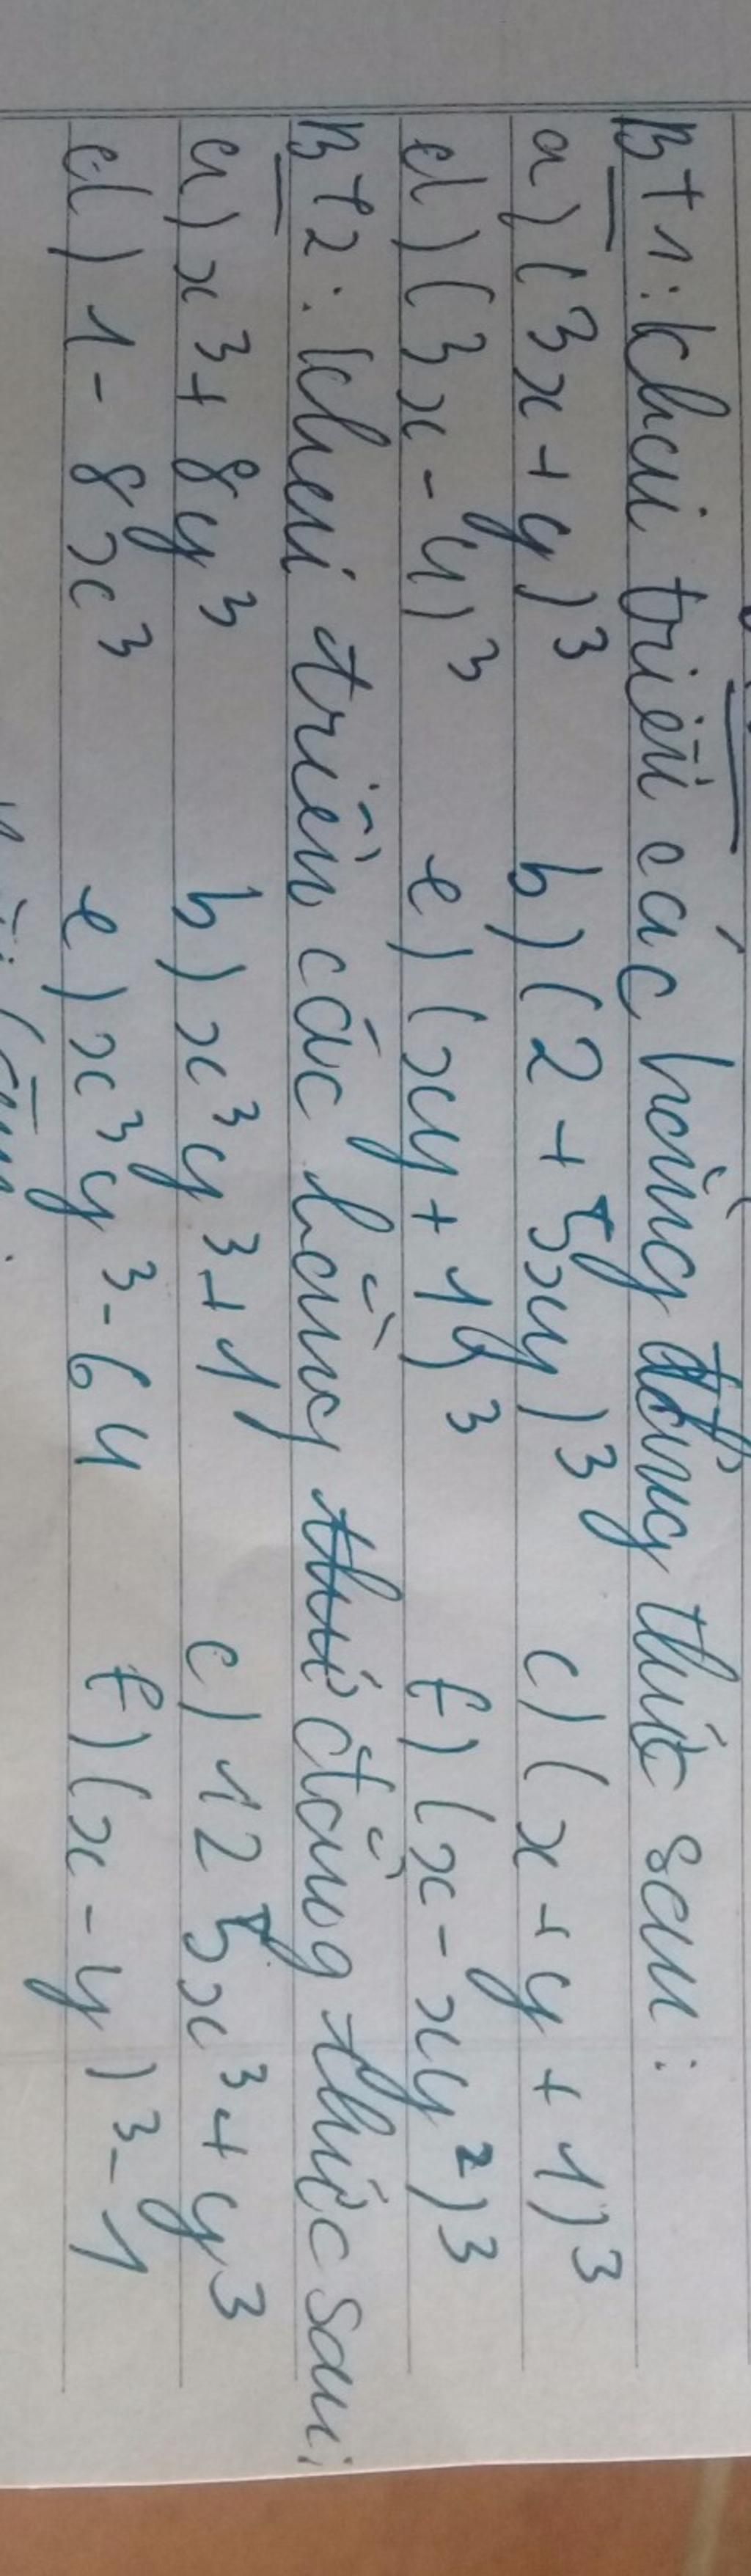 BT1: Khai triển các hằng đẳng thức sau:
a) (3x+y)³ b) (2+5xy)³ c) (x+y+1)³
d) (3x-4)³ e) (xy+1y)³ f) (x-xy²)³
BT2: Khai triển các hằng thức đẳng thức sau:
a) x³+8y³ b) x³y³+1 c) 125x³+y³
d) 1-8x³ e) x³y³-64 f) (x-y)³-1